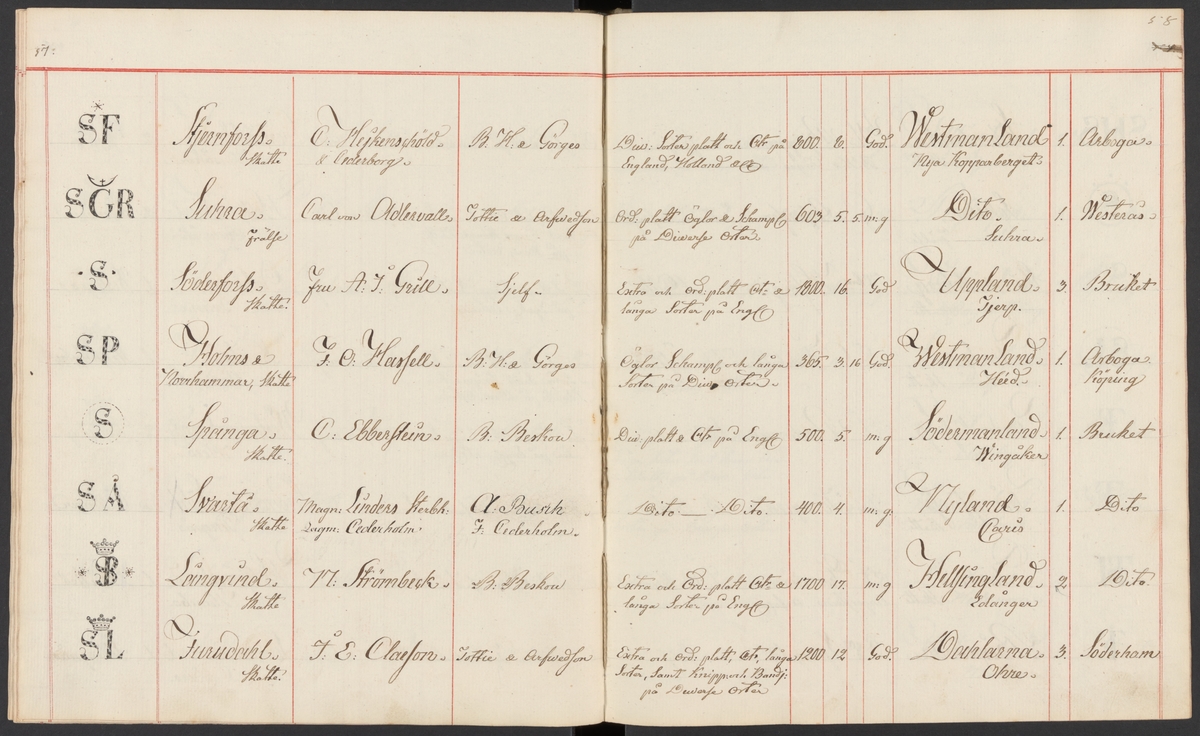 57:
58
SF Stjernforss. C: Heijkenschöld. B: H: & Görges Div: Sorter platt och Ct: på 800. 8. God. Westmanland 1. Arboga.
Skatte & Cederborg. England, Holland &c Nya Kopparberget.
SGR Suhra. Carl von Adlerwall. Tottie & Arfwedson Ord: platt Öglor & Skampl 603 5. 5. m: g Dito. 1. Westerås.
Frälse på Diverse Orter Suhra.
S Söderforss. Fru A: J: Grill. Sjelf. Extra och Ord: platt Ct: & 1800. 16. God Uppland. 3. Bruket
Skatte. långa Sorter på Engl Tjerp.
SP Holms & J: C: Hassell. B: H: & Görges Öglor Skampl och långa 365. 3. 16 God. Westmanland. 1. Arboga.
Norrhammar, Skatte Sorter på Div. Orter. Hed. Köping
S Spånga. C: Ebberstein. B: Beskow. Div: platt & Ct: på Engl 500. 5. m: g Södermanland. 1. Bruket
Skatte. Wingåker
SÅ Svartå. Magn: Linders Sterbh: A: Busch Dito — Dito. 400. 4. m: g. Nyland. 1. Dito
Skatte Lagm: Cederholm J: Cederholm. Caris
SB Långvind. N: Strömbeck. B: Beskow Extra och Ord: platt Ct: & 1700 17. m: g Helsingland. 2. Dito.
Skatte långa Sorter på Engl Enånger
SL Furudahl. J: E: Claeson. Tottie & Arfwedson Extra och Ord: platt, Ct:, långa 1200 12 God. Dahlarna. 3. Söderham
Skatte. Sorter, samt Knipp: och Bandj: Ohre.
på Diverse Orter